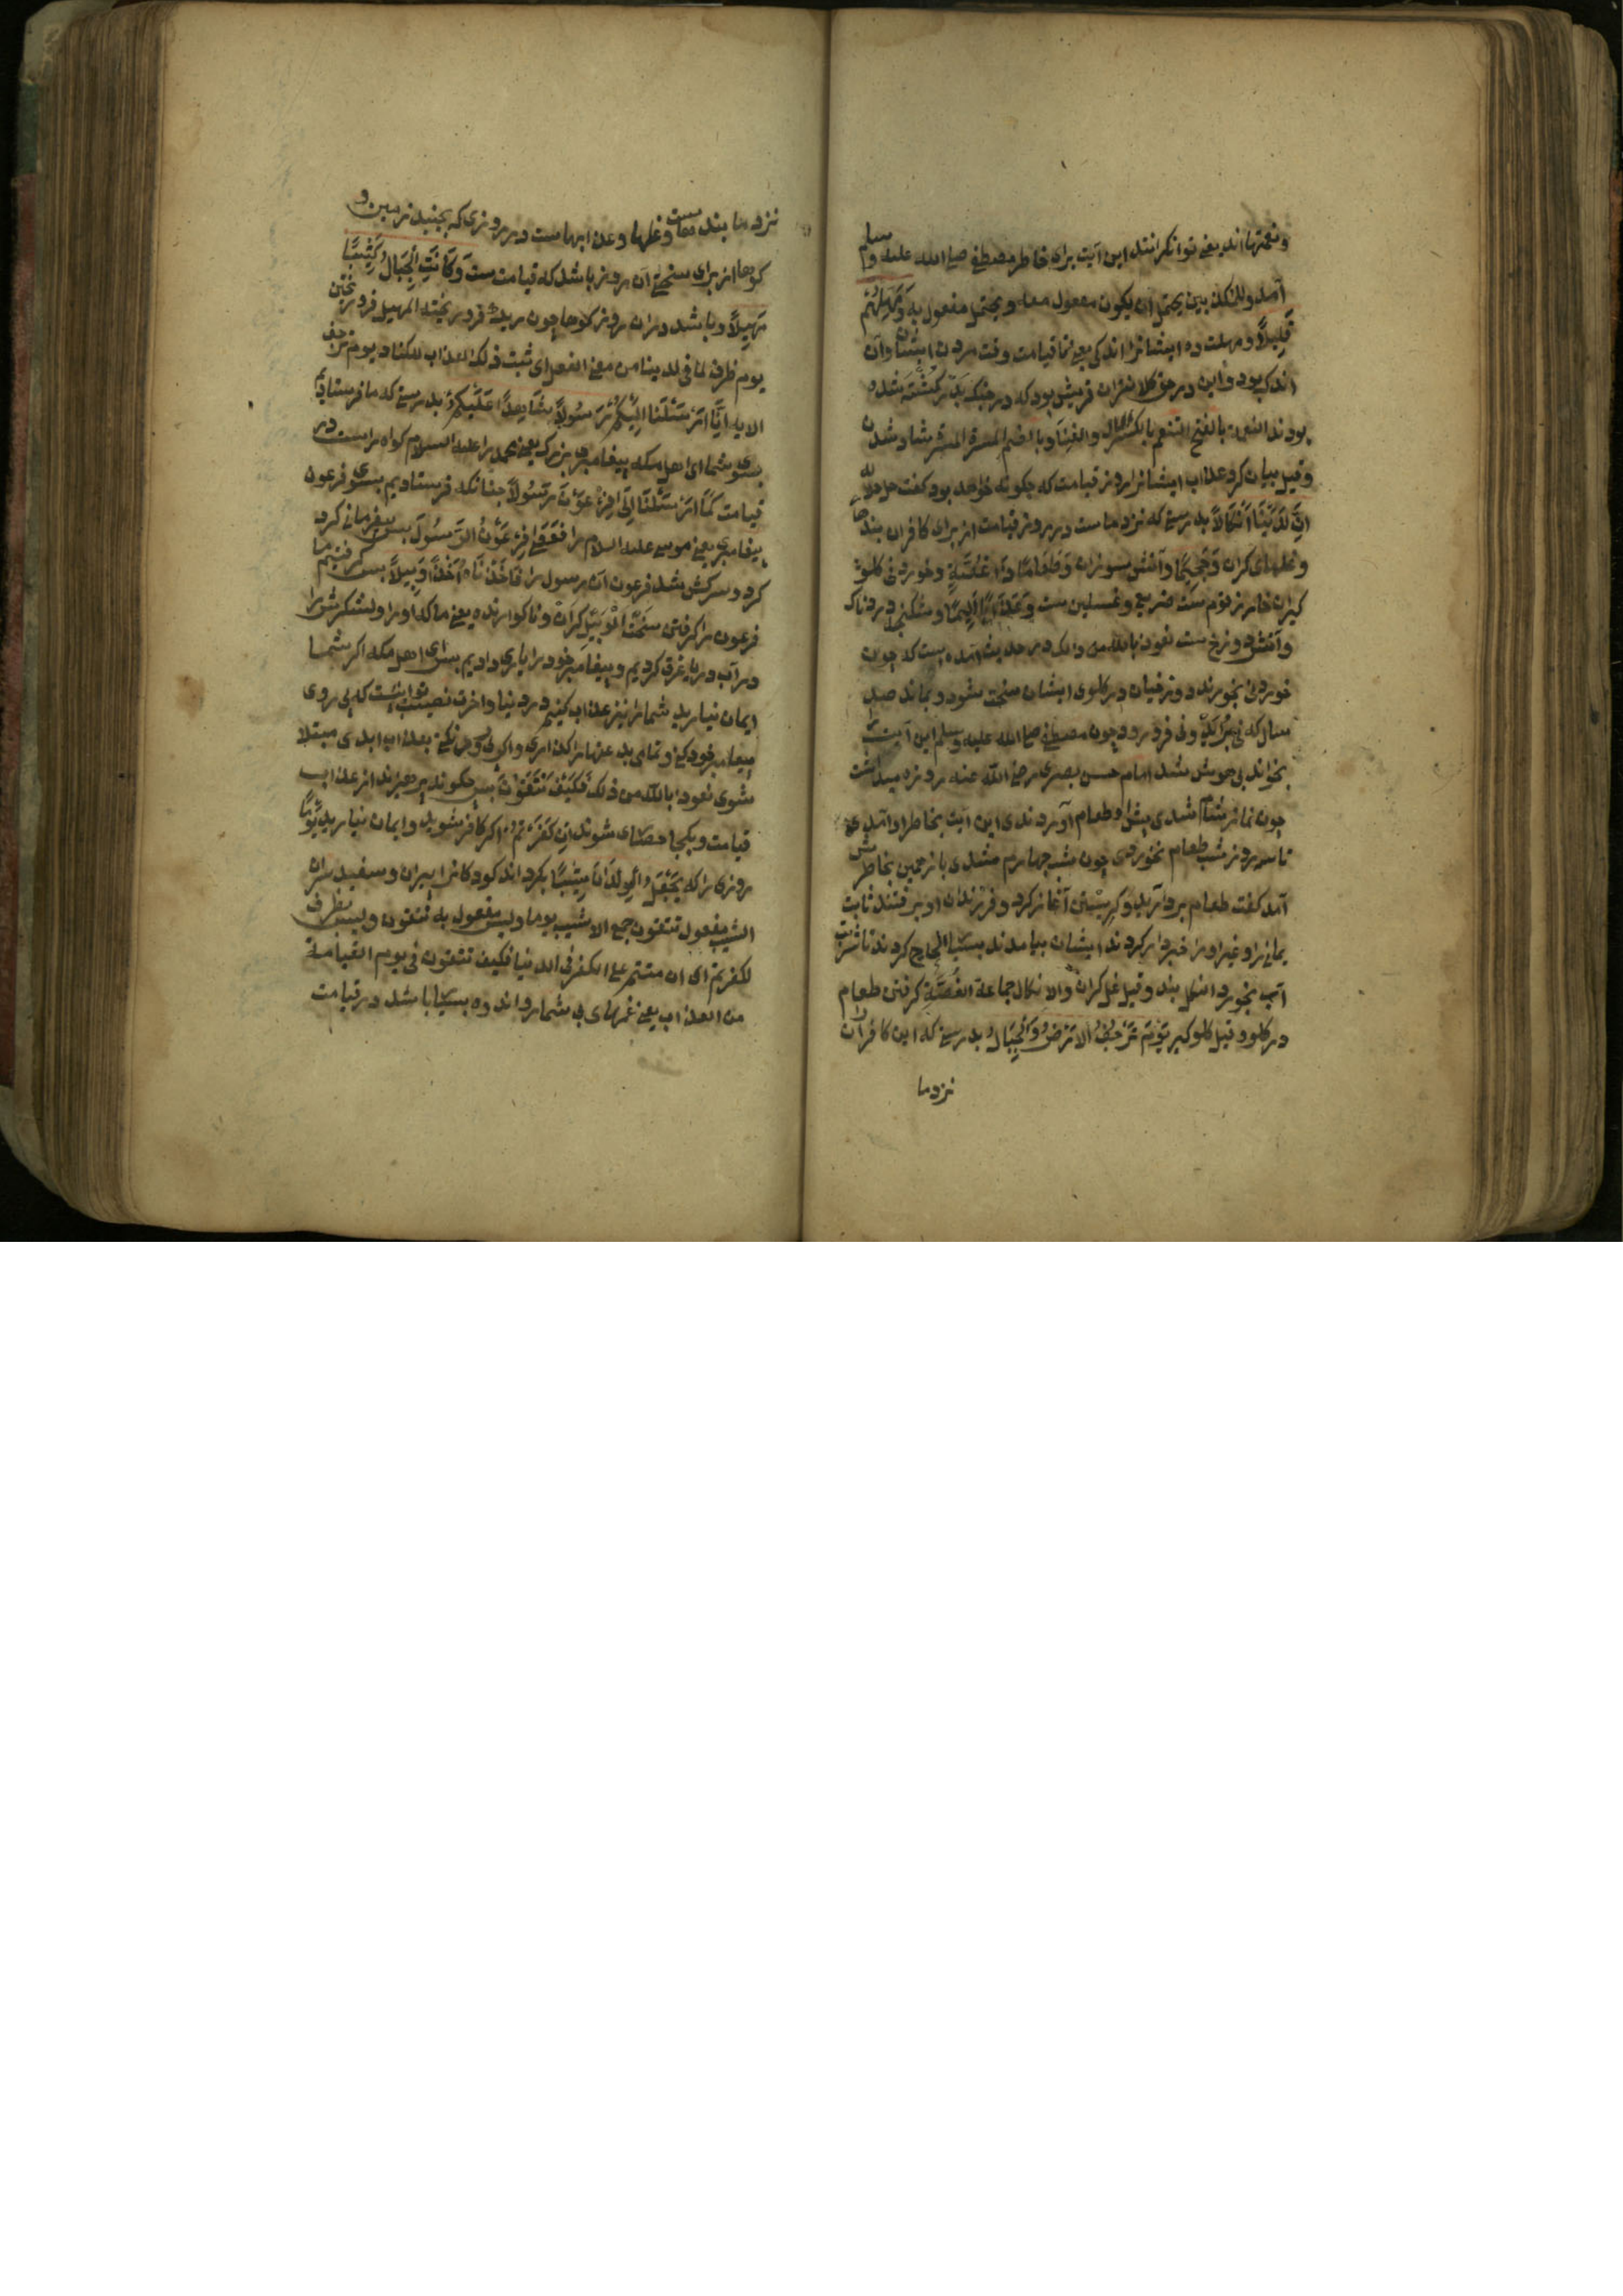 ونعمتها اند یعنی توانکرانند این آیت برای خاطر مصطفی صلی الله علیه وسلم
آمد والمکذبین یحتمل ان یکون مفعول معه ویحتمل مفعول به وَمَهِّلْهُمْ
قَلِیلًا ومهلت ده ایشانرا اندکی یعنی تا قیامت وقت مردن ایشان وآن
اندک بود واین در حق کلانتران قریش بود که در جنک بدر کشته شده
بودند النعمة بالفتح التنعم بالکسر المال والغنا وبالضم المسرة المسرة شاد شدن
وقیل بیان کرد عذاب ایشانرا روز قیامت که چکونه خواهد بود کفت جل جلاله
اِنَّ لَدَیْنَا اَنْکَالًا بدرستی که نزد ماست در روز قیامت از برای کافران بندها
وغلهای کران وَجَحِیمًا وآتش سوزان وَطَعَامًا ذَا غُصَّةٍ وخوردنی کلو
کیران خار زقوم ست ضریع وغسلین ست وَعَذَابًا اَلِیمًا وشکنجه دردناک
وآتش دوزخ ست نعوذ بالله من ذالک در حدیث آمده است که چون
خوردنی بخورند دوزخیان در کلوی ایشان سخت شود وبماند صد
سال که نی برآید ونی فرو رود چون مصطفی صلی الله علیه وسلم این آیت
بخواند بی هوش شد امام حسن بصری رضی الله عنه روزه میداشت
چون نماز شام شدی پیش او طعام آوردندی این آیت بخاطر او آمدی
تا سه روز شب طعام نخوردی چون شب چهارم شدی باز همین بخاطرش
آمد کفت طعام بردارید وکریستن آغاز کرد وفرزندان او برفتند ثابت
بنانی را وغیر او را خبردار کردند ایشان بیامدند بسیار الحاح کردند تا شربت
آب بخورد النکل بند وقیل غل کران والانکال جماعة الغُصَّةِ کرفتن طعام
در کلو وقیل کلو کیر یَوْمَ تَرْجُفُ الْاَرْضُ وَالْجِبَالُ بدرستی که این کافران را
نزد ما
نزد ما بندهاست وغلها وعذابهاست در روزی که بجنبد زمین و
کوهها از برای سختی آن روز باشد که قیامت ست وَکَانَتِ الْجِبَالُ کَثِیبًا
مَهِیلًا وباشد دران روز کوهها چون ریک فرو ریخته المهیل فرو ریختن
یوم ظرف لما فی لدینا من معنی الفعل ای ثبت ذلک العذاب للکفار یوم ترجف
الایه اِنَّا اَرْسَلْنَا اِلَیْکُمْ رَسُولًا شَاهِدًا عَلَیْکُمْ بدرستی که ما فرستادیم
بسوی شما ای اهل مکه پیغامبری بزرک یعنی محمد را علیه السلام کواه راست در
قیامت کَمَا اَرْسَلْنَا اِلَی فِرْعَوْنَ رَسُولًا چنانکه فرستادیم بسوی فرعون
پیغامبری یعنی موسی علیه السلام را فَعَصَی فِرْعَوْنُ الرَّسُولَ پس بیفرمانی کرد
کرد وسرکش شد فرعون آن رسول را فَاَخَذْنَاهُ اَخْذًا وَبِیلًا پس کرفتیم ما
فرعون را کرفتن سخت الوبیل کران وناکوارنده یعنی ما او را ولشکرش را
در آب دریا غرق کردیم وپیغامبر خود را یاری دادیم پس ای اهل مکه اکر شما
ایمان نیارید شما را نیز عذاب کنیم در دنیا واخرت نصیب تو اینست که پی روی
پیغامبر خود کنی وتمامی بدعتها را کذاری واکر نی بعذاب ابدی مبتلا
شوی نعوذ بالله من ذلک فَکَیْفَ تَتَّقُونَ پس چکونه پرهیزند از عذاب
قیامت وبکجا حصاری شوند اِنْ کَفَرْتُمْ اکر کافر شوید وایمان نیارید یَوْمًا
روزی را که یَجْعَلُ الْوِلْدَانَ شِیبًا بکرداند کودکان را پیران وسفید سران
الشیب مفعول تتقون جمع الاشیب یوما ولیس مفعول به تتقون ولیس بظرف
لکفرتم ای ان متم علی الکفر فی الدنیا فکیف تتقون فی یوم القیامة
من العذاب یعنی غمهای بی شمار واندوه بسیار باشد در قیامت